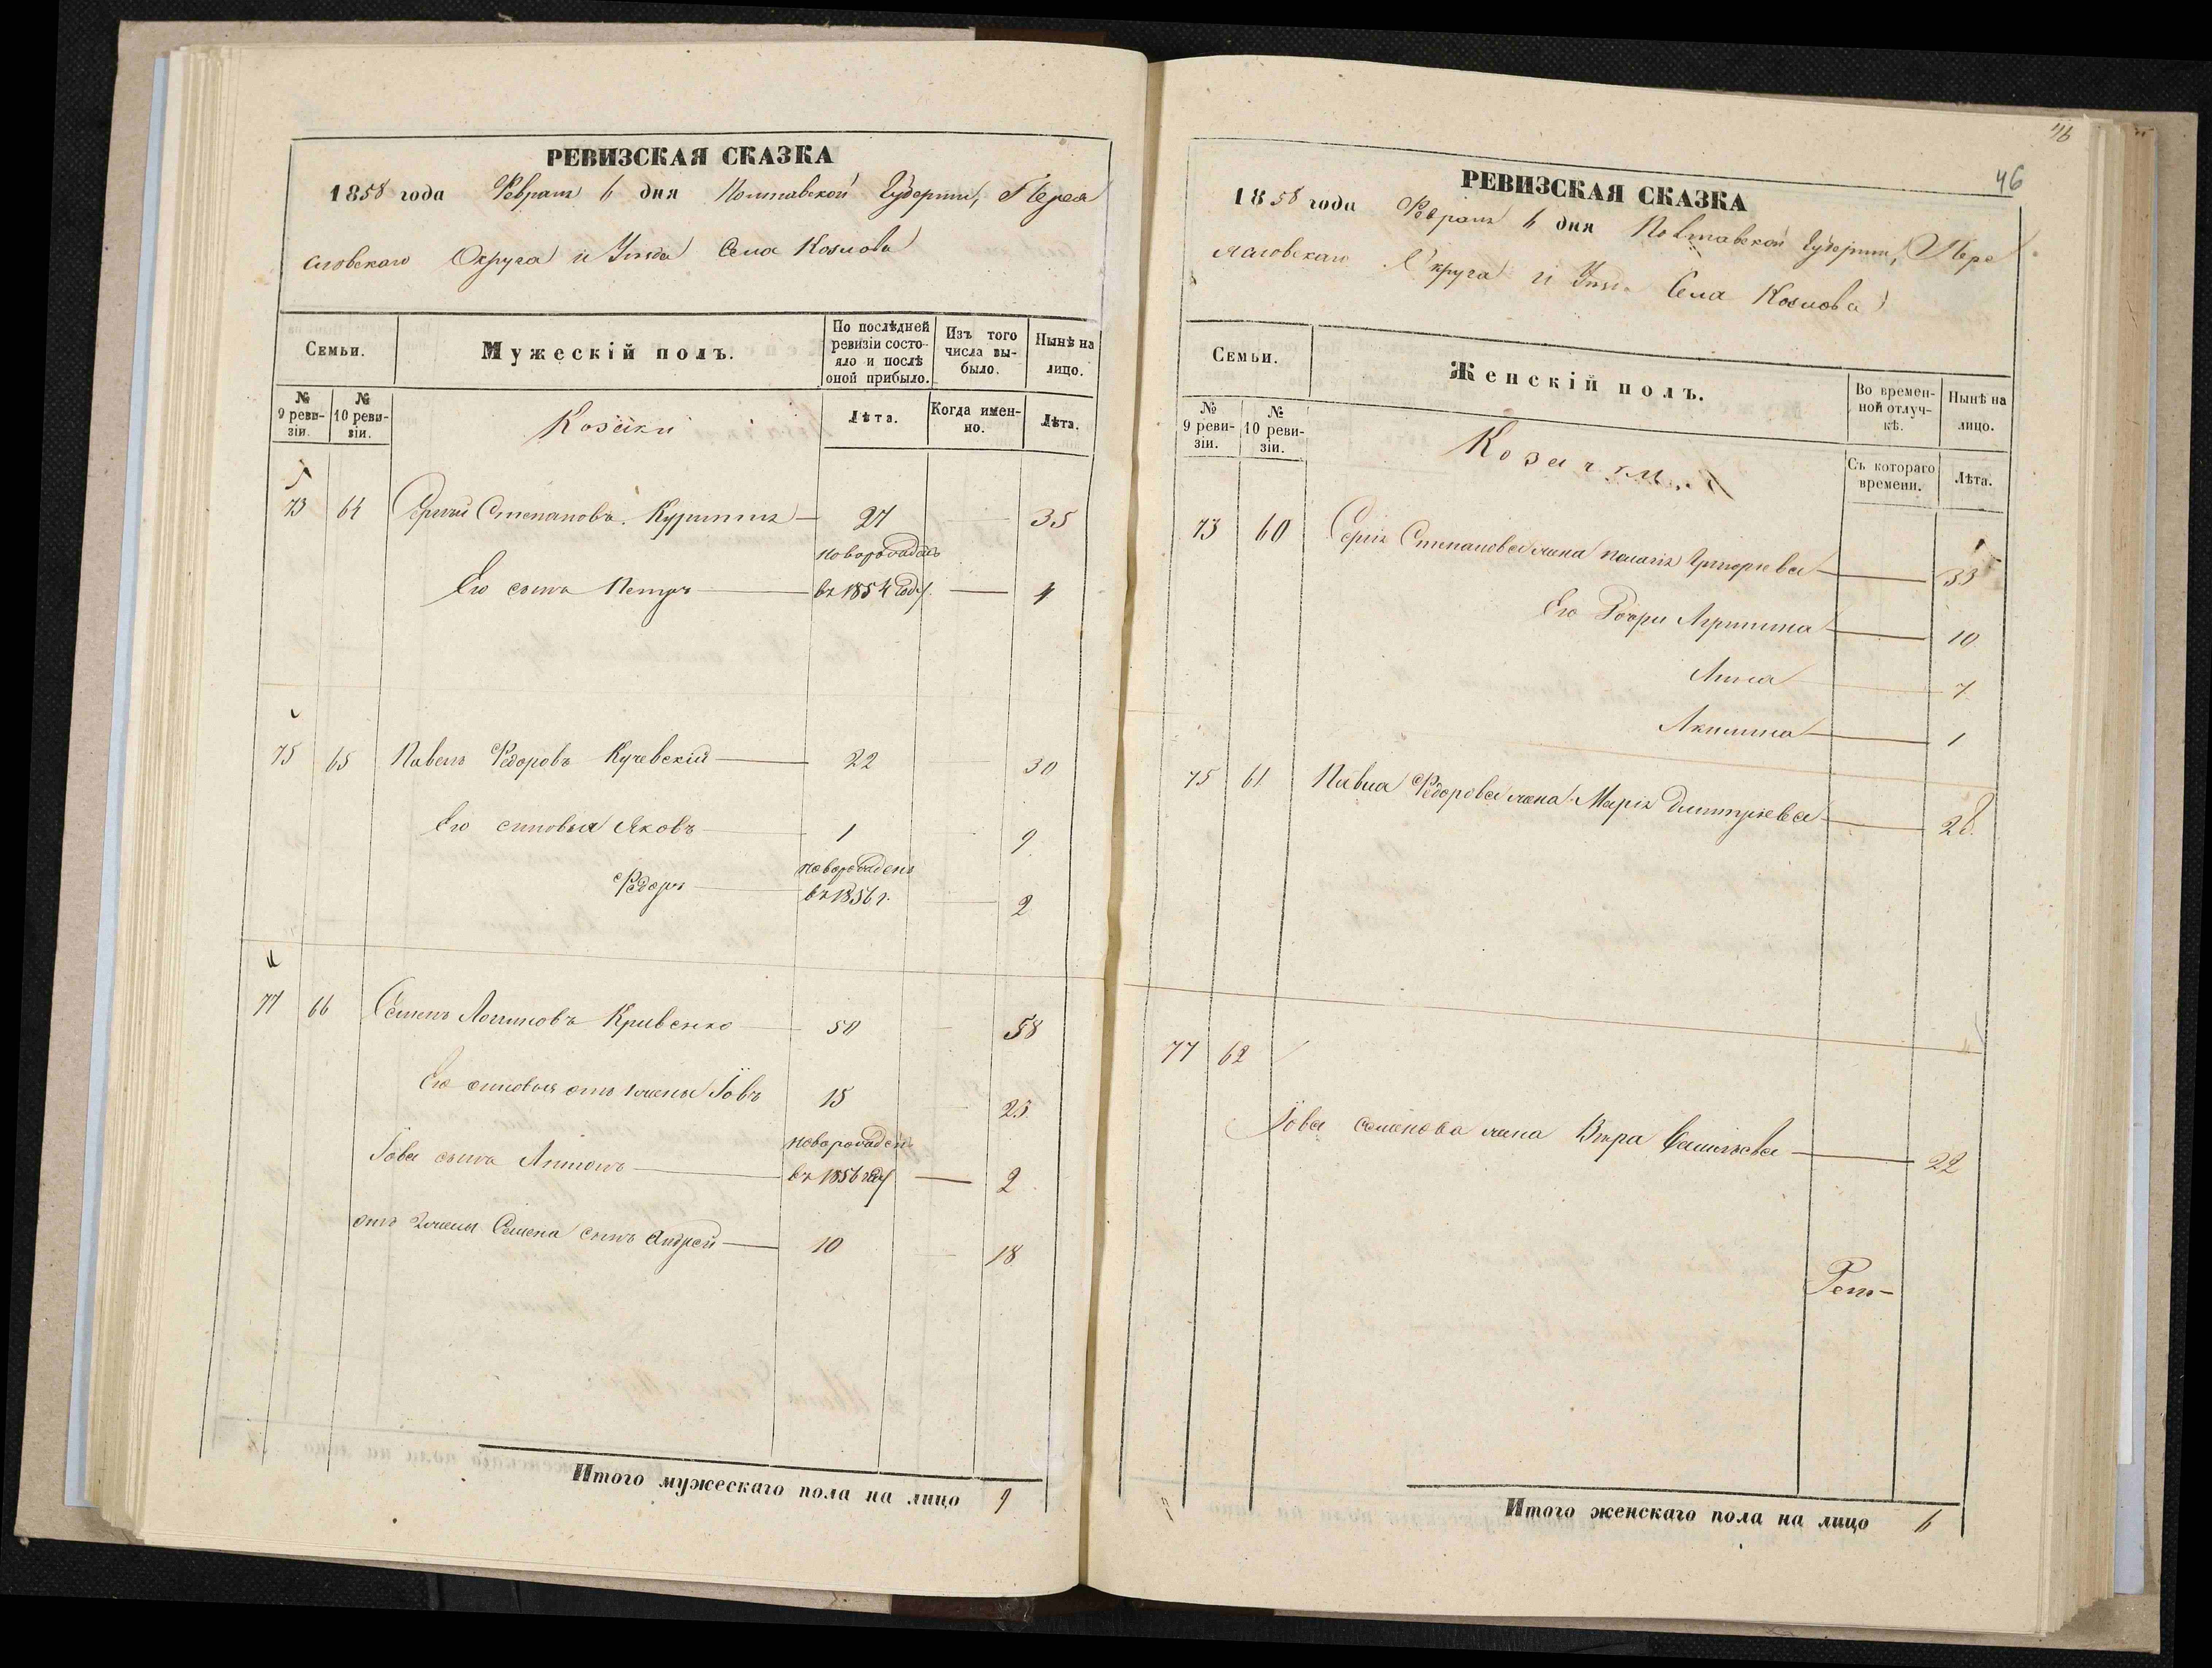 РЕВИЗСКАЯ СКАЗКА
1858 года Февраля 6 дня Полтавской Губерніи, Перея
словскаго Округа и Уѣзда Села Козлова
Семьи.
Мужескій полъ.
По послѣдней ревизіи состояло и послѣ оной прибыло.
Изъ того числа выбыло.
Нынѣ на лицо.
№ 9 ревизіи.
№ 10 ревизіи.
Козаки
Лѣта.
Когда именно.
Лѣта.
73 64 Сергій Степановъ 27 35
новорожденъ
Его сынъ Петръ въ 1854 году 4
75 65 Павелъ Федоровъ Кучевскій 22 30
Его сыновья Яковъ 1 9
новорожденъ
Федоръ въ 1856 г. 2
77 66 Семенъ Логиновъ Кривенко 50 58
Его сыновья отъ 1 жены Іовъ 15 23
новорожден
Іова сынъ Антонъ въ 1856 году 2
отъ 2 жены Семена сынъ Андрей 10 18
Итого мужескаго пола на лицо 9
46
46
РЕВИЗСКАЯ СКАЗКА
1858 года Февраля 6 дня Полтавской Губерніи, Пере
яславскаго Округа и Уѣзд. Села Козлова
Семьи.
Женскій полъ.
Во временной отлучкѣ.
Нынѣ на лицо.
№ 9 ревизіи.
№ 10 ревизіи.
Съ котораго времени.
Лѣта.
73 60 Сергія Степанова жена Пелагія Григорьева 33
Его дочери 10
Анна 7
Акилина 1
75 61 Павла Федорова жена Марія Димитріева 28
77 62
Іова Семенова жена Вѣра 22
Итого женскаго пола на лицо 6